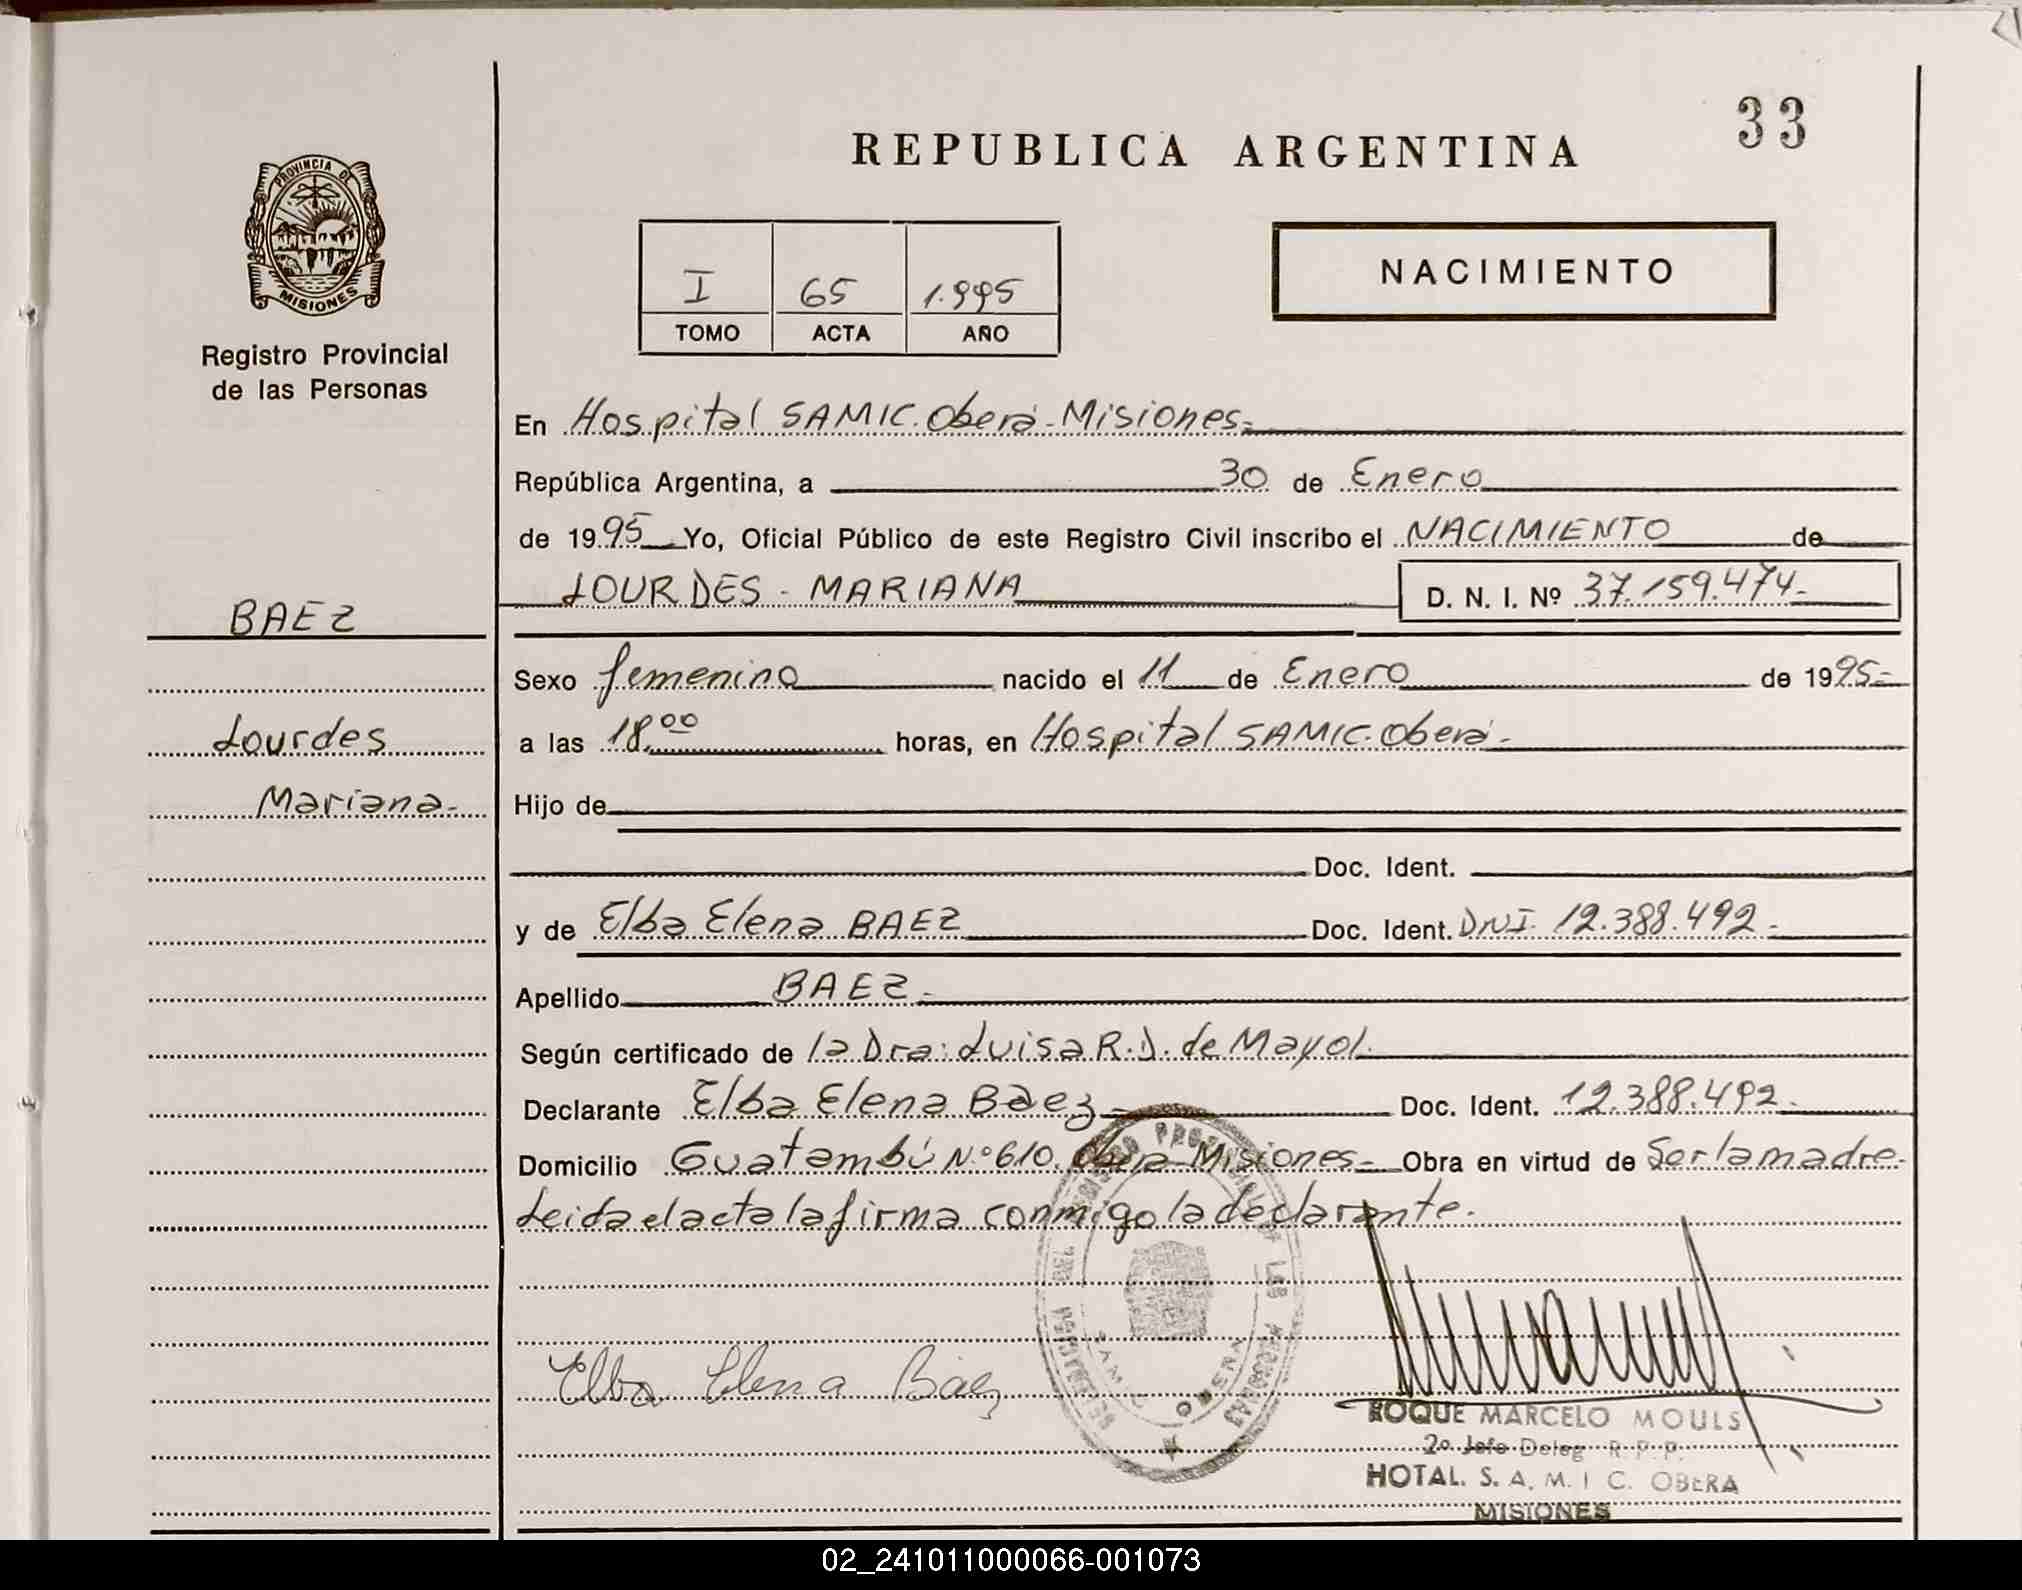 33
REPUBLICA ARGENTINA
PROVINCIA DE
MISIONES
Registro Provincial
de las Personas
I 65 1.995
TOMO ACTA AÑO
NACIMIENTO
En Hospital SAMIC. Oberá - Misiones.=
República Argentina, a 30 de Enero
de 1995 Yo, Oficial Público de este Registro Civil inscribo el NACIMIENTO de
LOURDES - MARIANA D. N. I. Nº 37.159.474.-
BAEZ
Lourdes
Mariana.-
Sexo femenino nacido el 11 de Enero de 1995.=
a las 18.00 horas, en Hospital SAMIC. Oberá.-
Hijo de
Doc. Ident.
y de Elba Elena BAEZ Doc. Ident. DNI. 12.388.492.-
Apellido BAEZ.-
Según certificado de la Dra: Luisa R.D. de Mayol.
Declarante Elba Elena Baez.- Doc. Ident. 12.388.492.
Domicilio Guatambú N.º 610. Oberá - Misiones.= Obra en virtud de Ser la madre.
Leida el acta la firma conmigo la declarante.
Elba Elena Báez
ROQUE MARCELO MOULS
2º Jefe Deleg R. P. P.
HOTAL. S. A. M. I C. OBERA
MISIONES
02_241011000066-001073